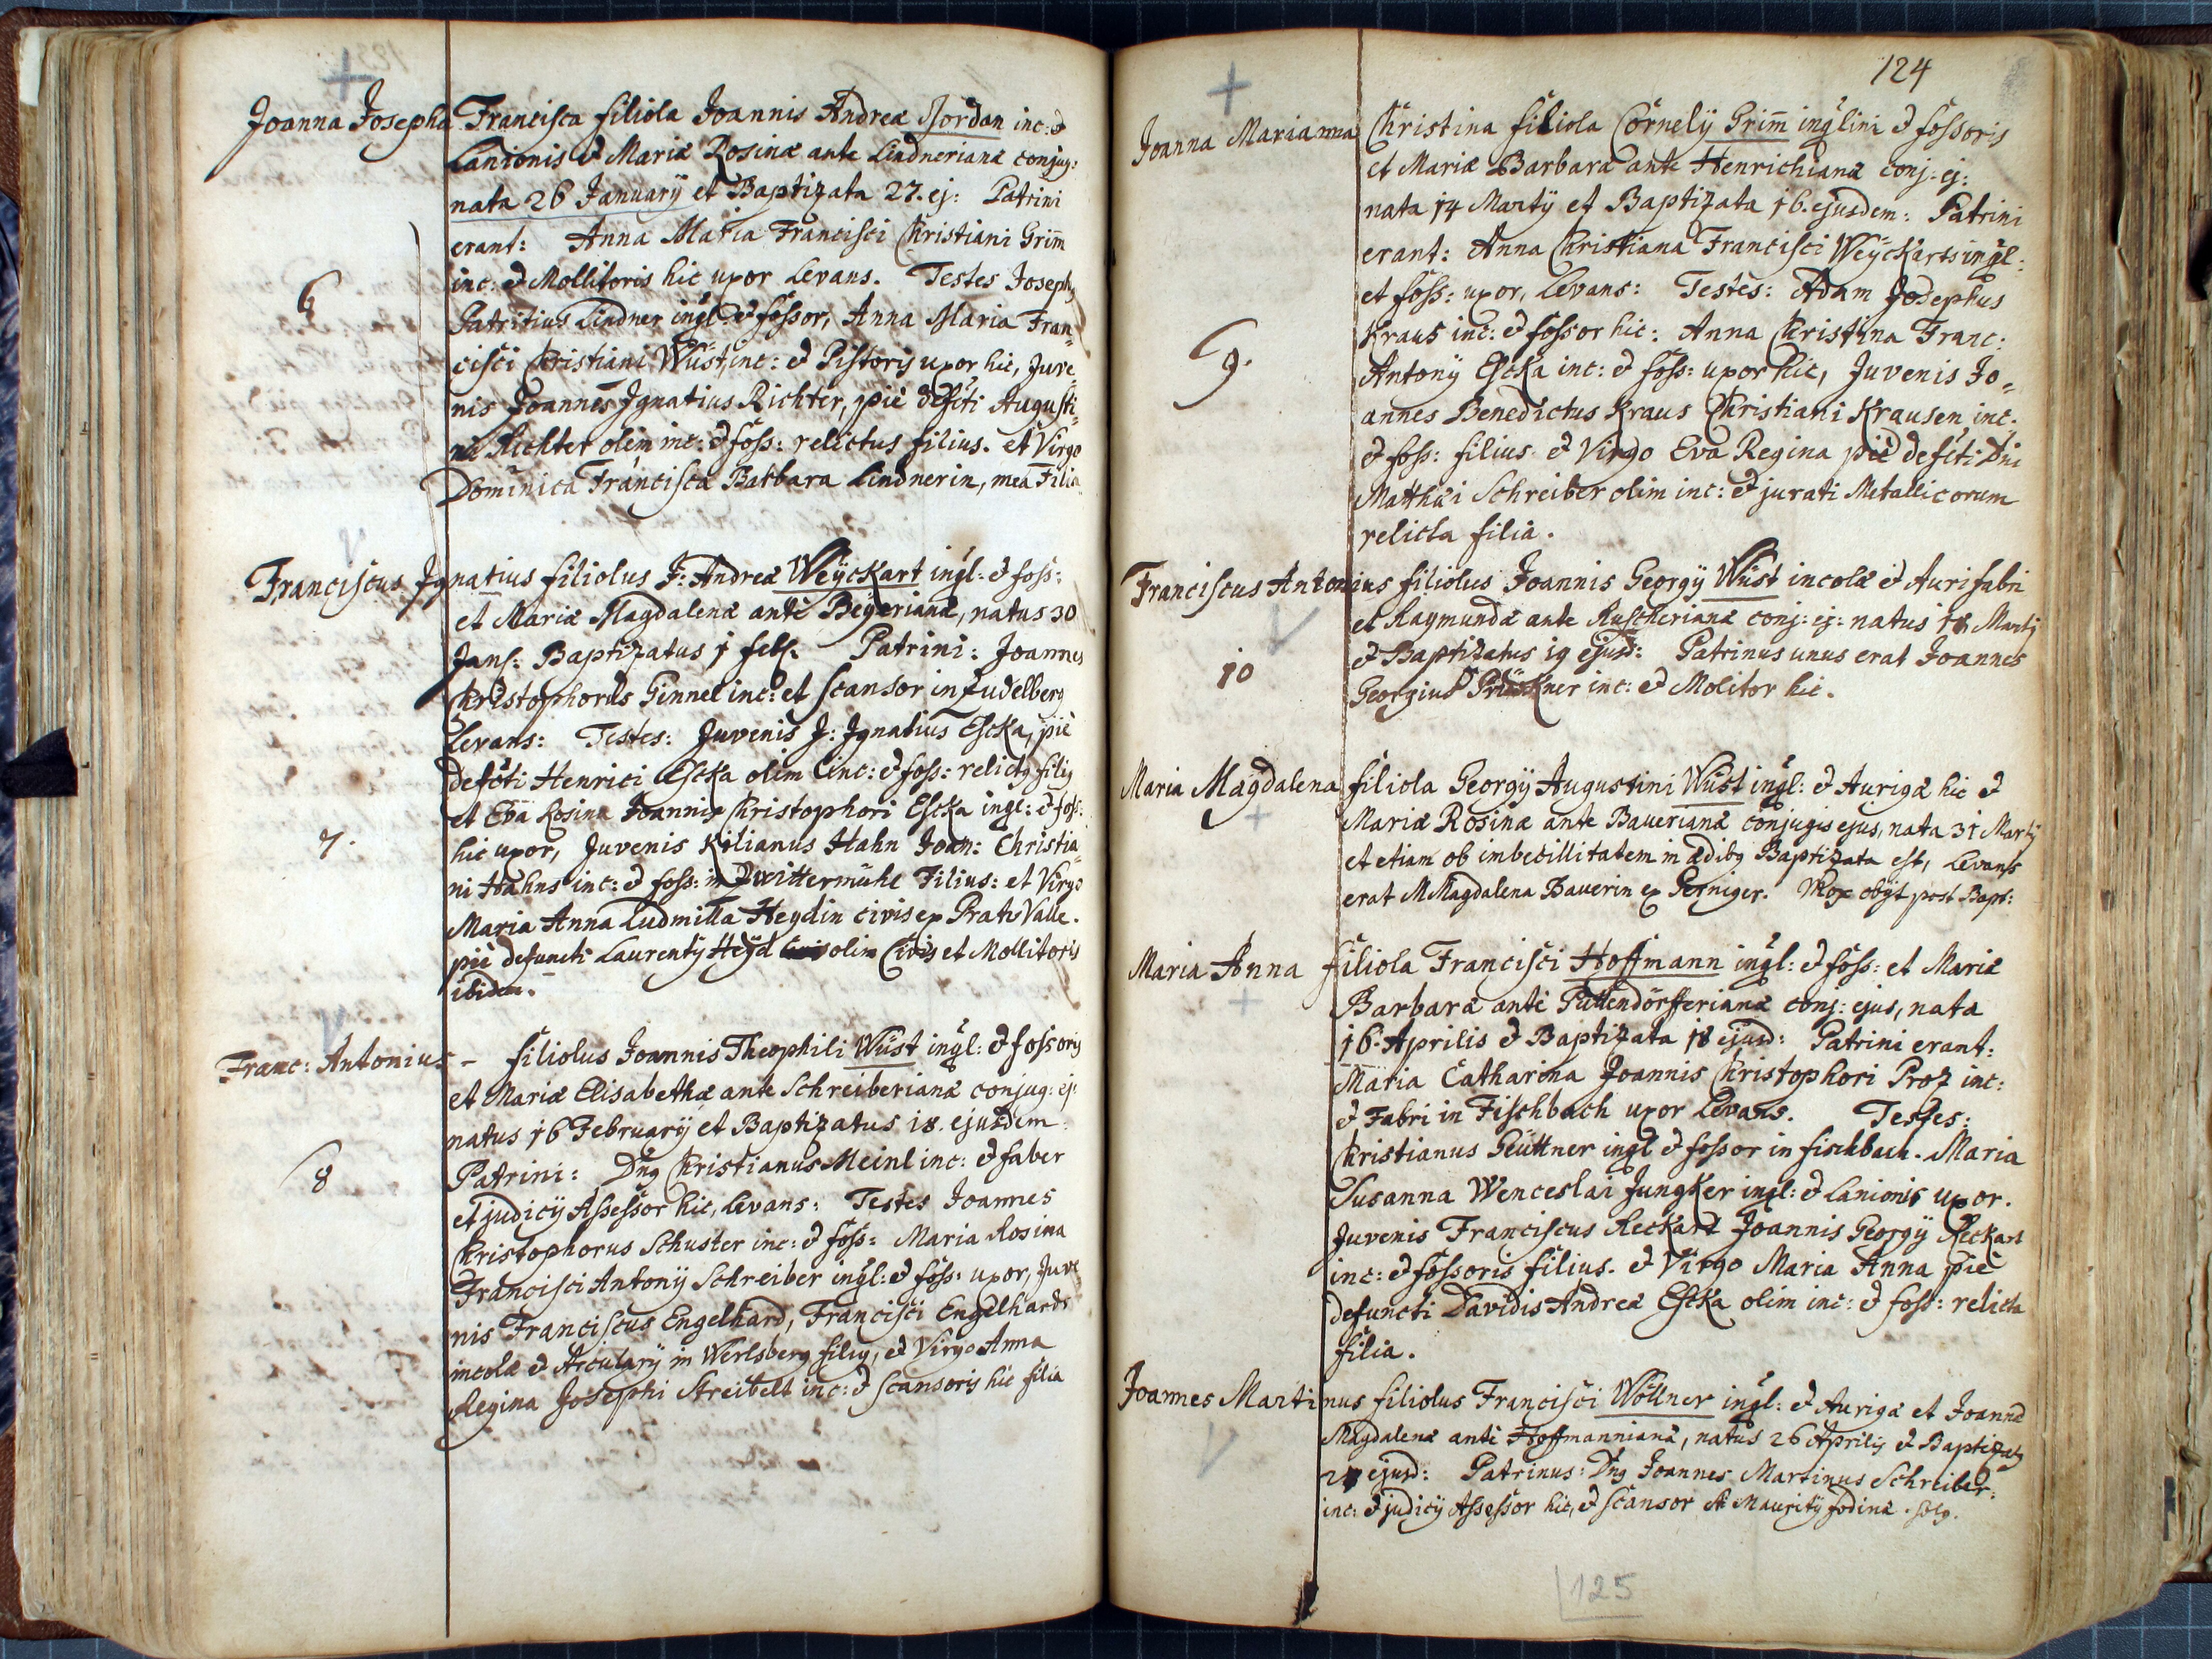 Joanna Josepha Francisca filiola Joannis Andreæ Jordan inc: &
Lanionis & Mariæ Rosinæ ante Lindnerianæ conjug:
nata 26 Januarÿ et Baptizata 27. ej: Patrini
erant: Anna Maria Francisci Christiani Grim̄
inc: & Mollitoris hic uxor Levans. Testes Josephg
6 Patritius Lindner ingl: & fossor, Anna Maria Fran=
cisci Christiani Wüst, inc: & Pistoris uxor hic, Juve
nis Joannes Ignatius Richter, piè defcti Augusti=
ni Richter olim inc: & foss: relictus filius. et Virgo
Dominica Francisca Barbara Lindnerin, mea Filia
Franciscus Ignatius filiolus J: Andreæ Weÿckart ingl: & foss:
et Mariæ Magdalenæ ante Beyerianæ, natus 30
Jan: Baptizatus 1 feb. Patrini: Joannes
Christophorus Ginnel inc: et scansor in Judelberg
Levans: Testes: Juvenis J: Ignatius Escka, piè
defcti Henrici Escka olim inc: & foss: relictg filig
et Eva Rosina Joannis Christophori Escka ingl: & foss:
7. hic uxor, Juvenis Kilianus Hahn Joan: Christia=
ni Hahns inc: & foss: in Zwittermühl Filius: et Virgo
Maria Anna Ludmilla Heydin civis ex Prato Valle.
piè defuncti Laurentÿ Heÿd olim Civis et Mollitoris
ibidem.
Franc: Antonius – filiolus Joannis Theophili Wüst ingl: & fossoris
et Mariæ Elisabethæ ante Schreiberianæ conjug: ej:
natus 16 Februarÿ et Baptizatus 18. ejusdem.
8 Patrini: Dng Christianus Meinl inc: & faber
et judicÿ Assessor hic, Levans: Testes Joannes
Christophorus Schuster inc: & foss: Maria Rosina
Francisci Antonÿ Schreiber ingl: & foss: uxor, Juve
nis Franciscus Engelhard, Francisci Engelhards
incolæ & Arculary in Werlsberg filig, & Virgo Anna
Regina Josephi Streibelt inc: & scansoris hic filia
124
Joanna Marianna Christina filiola Cornelÿ Grim̄ inglini & fossoris
et Mariæ Barbaræ ante Henrichianæ conj: ej:
nata 14 Martÿ et Baptizata 16. ejusdem: Patrini
erant: Anna Christiana Francisci Weÿckarts ingl:
et foss: uxor, Levans: Testes: Adam Josephus
Kraus inc: & fossor hic: Anna Christina Franc:
9. Antonÿ Escka inc: & foss: uxor hic, Juvenis Jo=
annes Benedictus Kraus Christiani Krausen, inc.
& foss: filius & Virgo Eva Regina piè defcti Dni
Matthæi Schreiber olim inc: & jurati Metallicorum
relicta filia.
Franciscus Antonius filiolus Joannis Georgÿ Wüst incolæ & Aurifabri
et Raymundæ ante Ruscherianæ conj: ej: natus 18 Martÿ
10 & Baptizatus 19 ejusd: Patrinus unus erat Joannes
Georgius Prückner inc: & Molitor hic.
Maria Magdalena filiola Georgÿ Augustini Wüst ingl: & Aurigæ hic &
Mariæ Rosinæ ante Bauerianæ conjugis ejus, nata 31 Martÿ
et etiam ob imbecillitatem in ædibg Baptizata est, Levans
erat M Magdalena Bauerin ex Perniger. Mox obÿt post Bapt:
Maria Anna filiola Francisci Hoffmann ingl: & foss: et Mariæ
Barbaræ ante Puttendörfferianæ conj: ejus, nata
16. Aprilis & Baptizata 18 ejusd: Patrini erant:
Maria Catharina Joannis Christophori Proz inc:
& Fabri in Fischbach uxor Levans. Testes:
Christianus Geüttner ingl & fossor in fischbach. Maria
Susanna Wenceslai Jungker ingl: & Lanionis uxor.
Juvenis Franciscus Reckart Joannis Georgÿ Reckart
inc: & fossoris filius. & Virgo Maria Anna piè
defuncti Davidis Andreæ Escka olim inc: & foss: relicta
filia.
Joannes Martinus filiolus Francisci Wöllner ingl: & Aurigæ et Joannæ
Magdalenæ ante Hoffmannianæ, natus 26 Aprilis & Baptizatg
ejusd: Patrinus: Dng Joannes Martinus Schreiber:
inc: & judicÿ Assessor hic, & scansor St Mauritÿ fodinæ. solg.
125